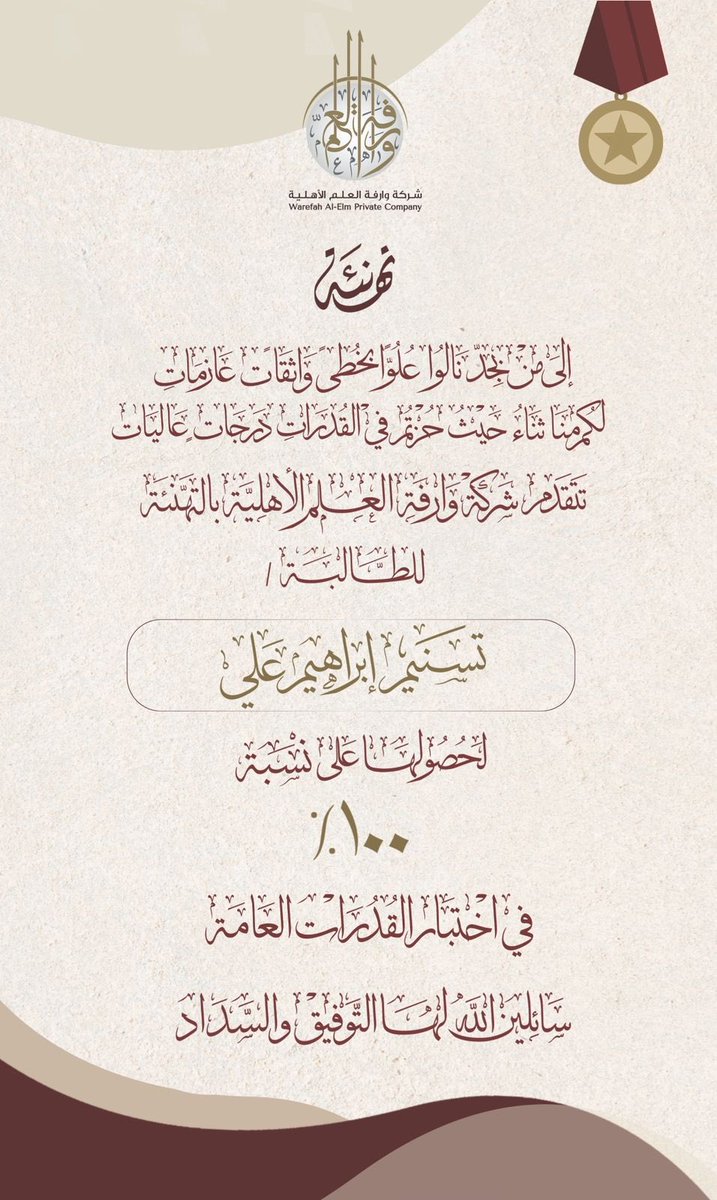 وارفة العلم
شركة وارفة العلم الأهلية
Warefah Al-Elm Private Company
تهنئة
إلى مَنْ بجدّ نَالُوا عُلُوًّا بخُطىً وَاثقَاتً عَازمَاتِ
لكُم منا ثناءُ حَيثُ حُزتُم في القُدرَاتِ دَرجَات ٍعَاليَات
تتَقَدم شركة وَارفَةِ العلم الأهليَّة بالتهَّنئة
للطَّالبَة /
تسَنيم إبراهيم عَلي
لحصُولهَا عَلى نسْبَة
١٠٠٪
في اختبَار القُدُرَات العَامَة
سَائلين اللَّه لهَا التَّوفيق والسَّدَاد